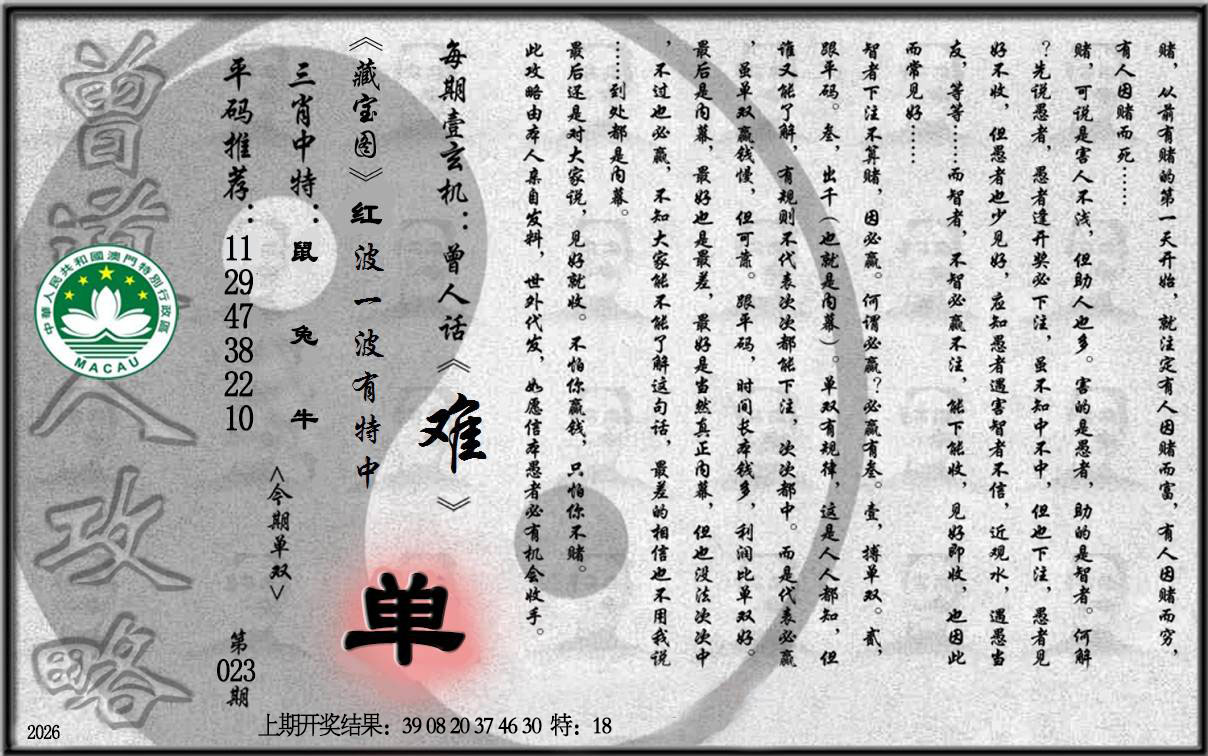 赌，从前有赌的第一天开始，就注定有人因赌而富，有人因赌而穷，
有人因赌而死……
赌，可说是害人不浅，但助人也多。害的是愚者，助的是智者。何解
？先说愚者，愚者逢开奖必下注，虽不知中不中，但也下注，愚者见
好不收，但愚者也少见好，应知愚者遇害智者不信，近观水，遇愚当
友，等等……而智者，不智必赢不注，能下能收，见好即收，也因此
而常见好……
智者下注不算赌，因必赢。何谓必赢？必赢有叁。壹，搏单双。贰，
跟平码。叁，出千（也就是内幕）。单双有规律，这是人人都知，但
谁又能了解，有规则不代表次次都能下注，次次都中。而是代表必赢
，虽单双赢钱慢，但可靠。跟平码，时间长本钱多，利润比单双好。
最后是内幕，最好也是最差，最好是当然真正内幕，但也没法次次中
，不过也必赢，不知大家能不能了解这句话，最差的相信也不用我说
……到处都是内幕。
最后还是对大家说，见好就收。不怕你赢钱，只怕你不赌。
此攻略由本人亲自发料，世外代发，如愿信本愚者必有机会收手。
每期壹玄机：曾人话《难》
《藏宝图》红波一波有特中
单
三肖中特：鼠 兔 牛
<今期单双>
平码推荐：11 29 47 38 22 10
第023期
曾道人攻略
中華人民共和國澳門特別行政區
MACAU
2026
上期开奖结果：39 08 20 37 46 30 特：18